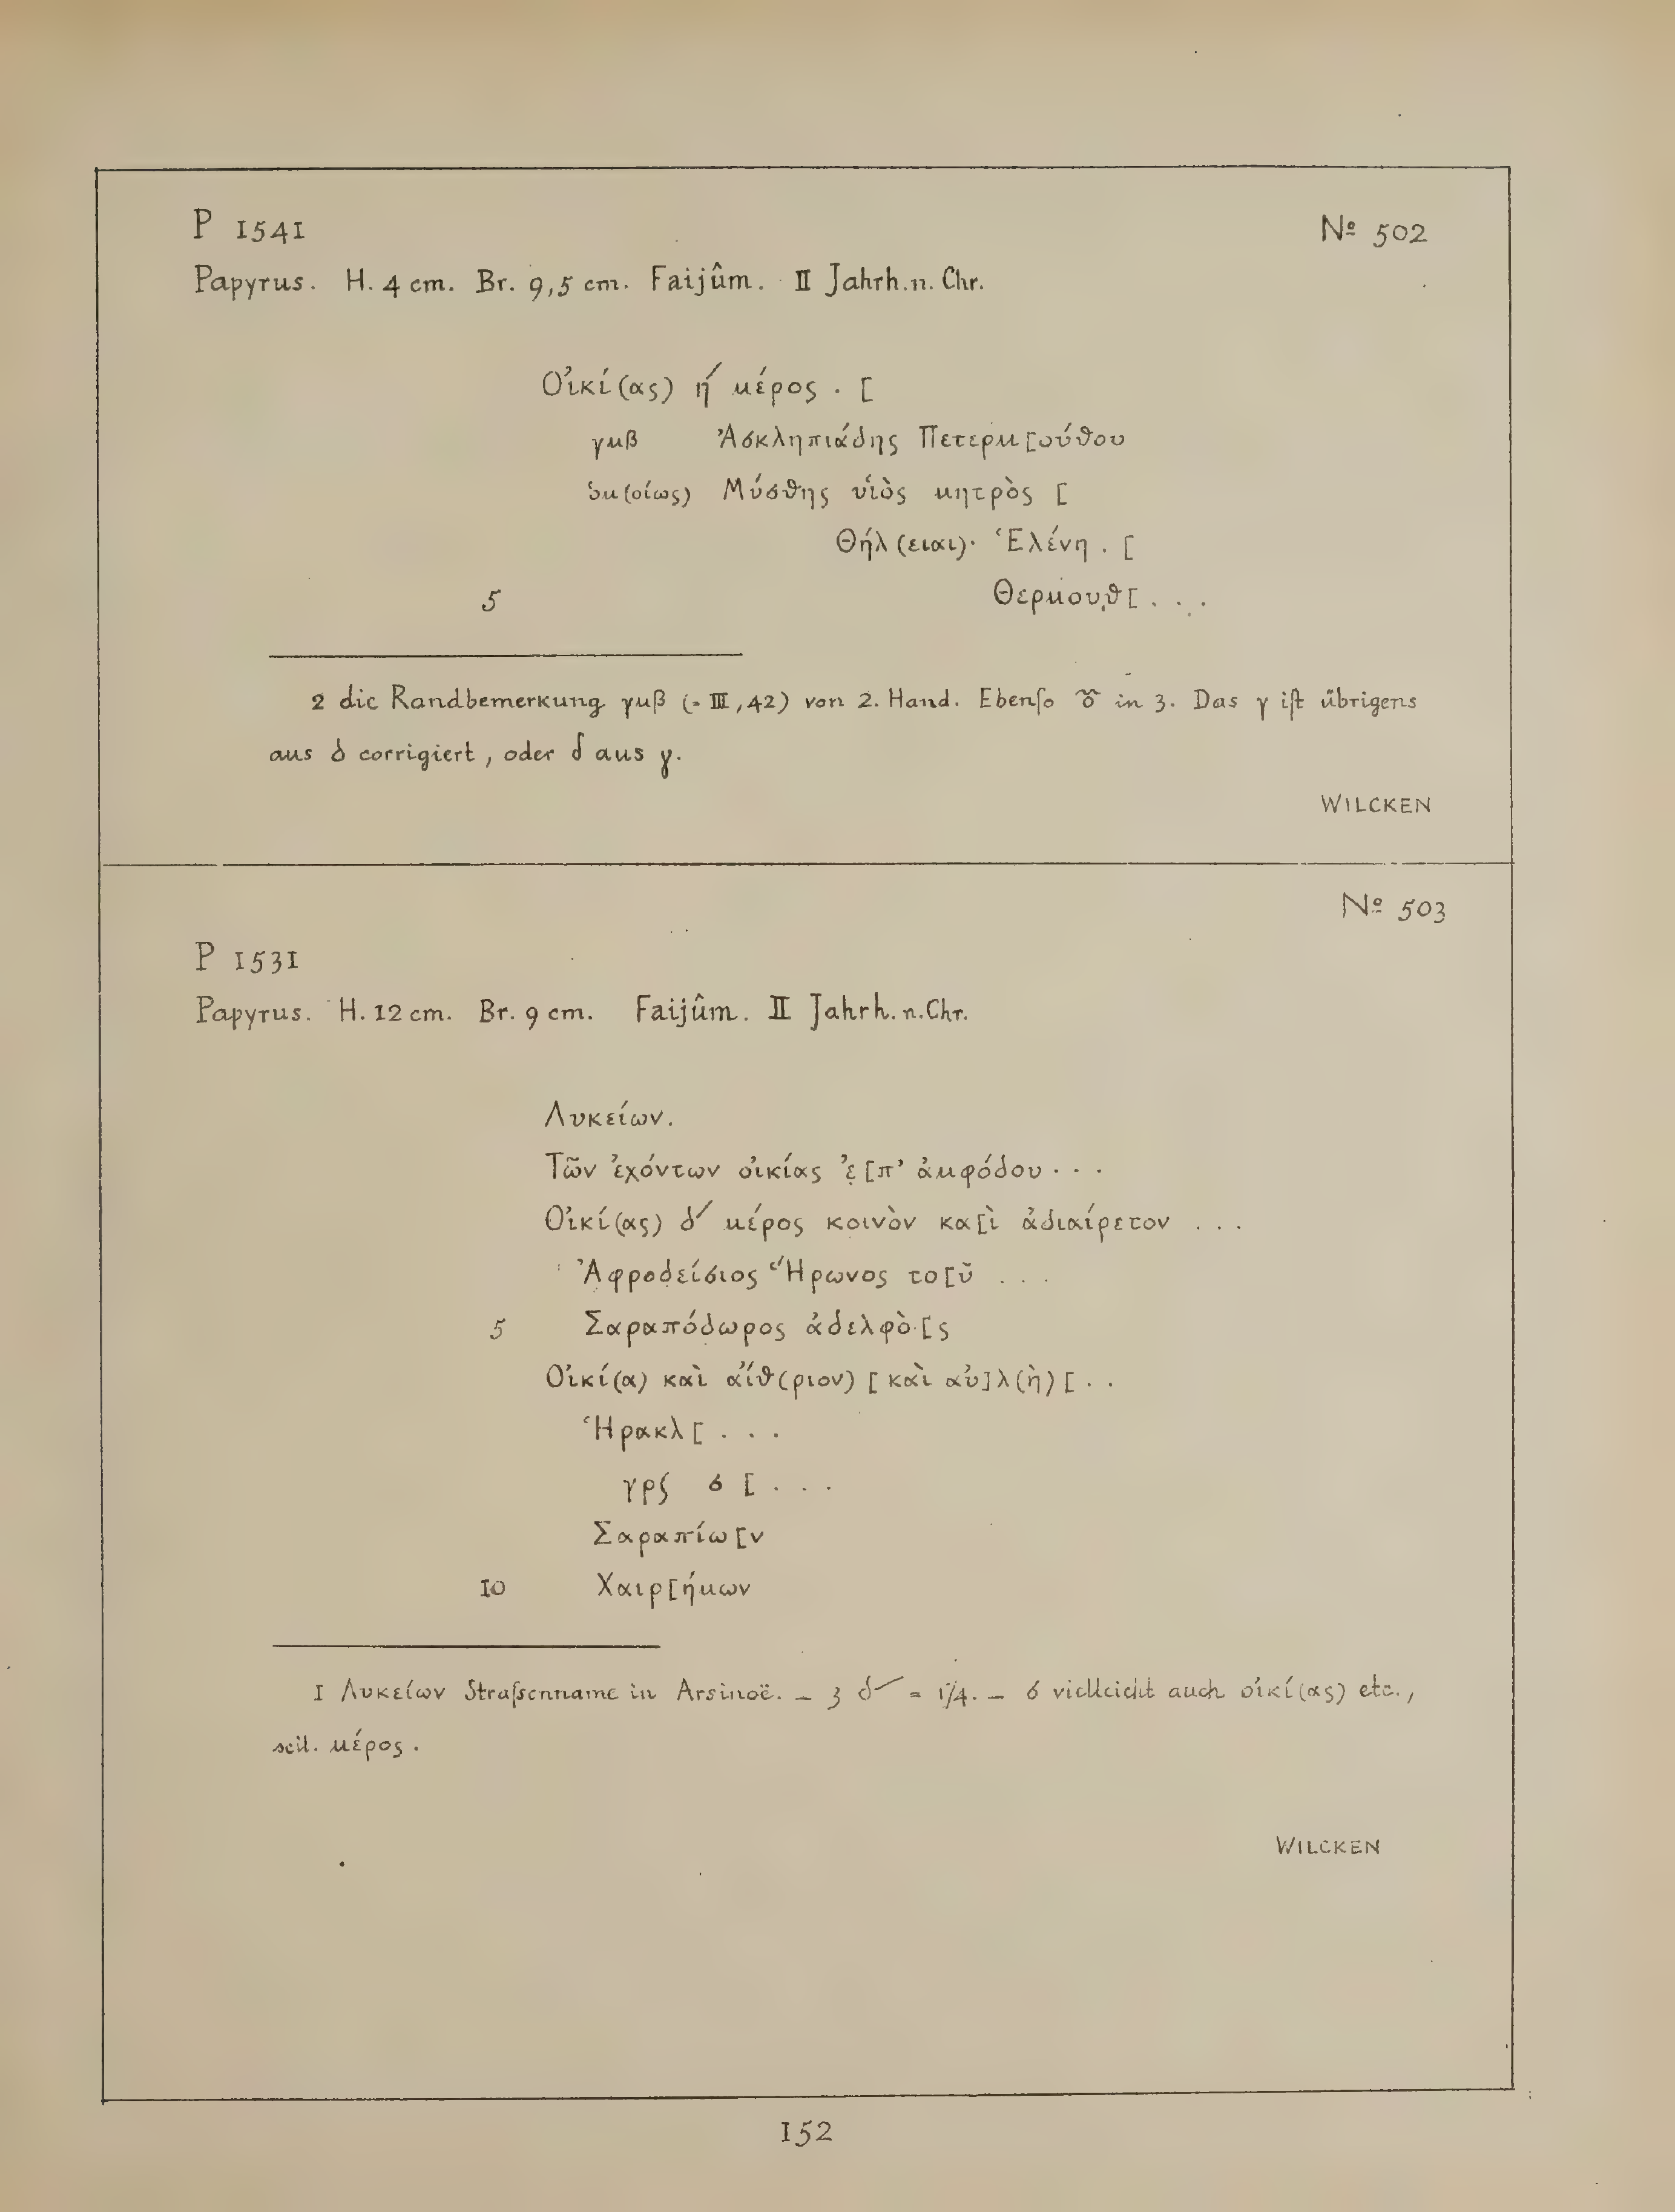 P 1541
Nº 502
Papyrus. H. 4 cm. Br. 9,5 cm. Faijûm. II Jahrh. n. Chr.
Οἰκί(ας) η´ μέρος . [
γμβ Ἀσκληπιάδης Πετερμ[ούθου
ὁμ(οίως) Μύσθης υἱὸς μητρὸς [
Θήλ(ειαι)· Ἑλένη . [
5 Θερμουθ[ . . .
2 die Randbemerkung γμβ (= III, 42) von 2. Hand. Ebenſo in 3. Das γ iſt übrigens
aus δ corrigiert, oder δ aus γ.
WILCKEN
Nº 503
P 1531
Papyrus. H. 12 cm. Br. 9 cm. Faijûm. II Jahrh. n. Chr.
Λυκείων.
Τῶν ἐχόντων οἰκίας ἐ̣[π’ ἀμφόδου . . .
Οἰκί(ας) δ´ μέρος κοινὸν κα[ὶ ἀδιαίρετον . . .
Ἀφροδείσιος Ἥρωνος το[ῦ . . .
5 Σαραπόδωρος ἀδελφὸ[ς
Οἰκί(α) καὶ αἴθ(ριον) [καὶ αὐ]λ(ὴ) [ . .
Ἡρακλ[ . . .
γρϛ σ [ . . .
Σαραπίω[ν
10 Χαιρ[ήμων
1 Λυκείων Straſsenname in Arsinoë. – 3 δ´ = 1/4. – 6 vielleicht auch οἰκί(ας) etc.,
scil. μέρος.
WILCKEN
152